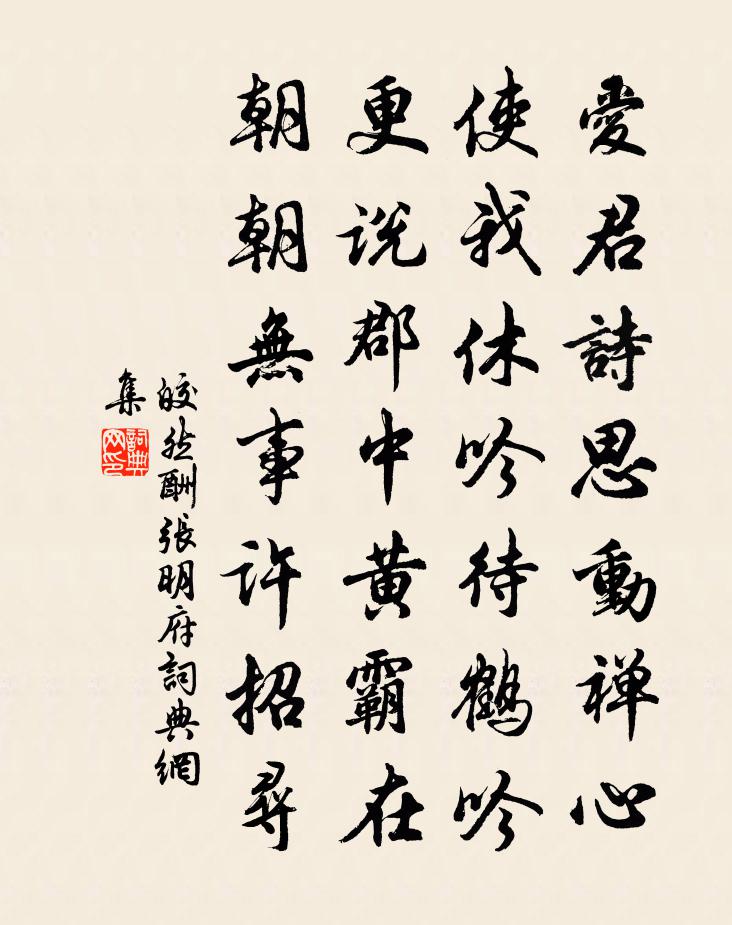 愛君詩思動禅心
使我休吟待鶴吟
更説郡中黄霸在
朝朝無事許招尋
皎然酬張明府詞典網
集
詞典
网印